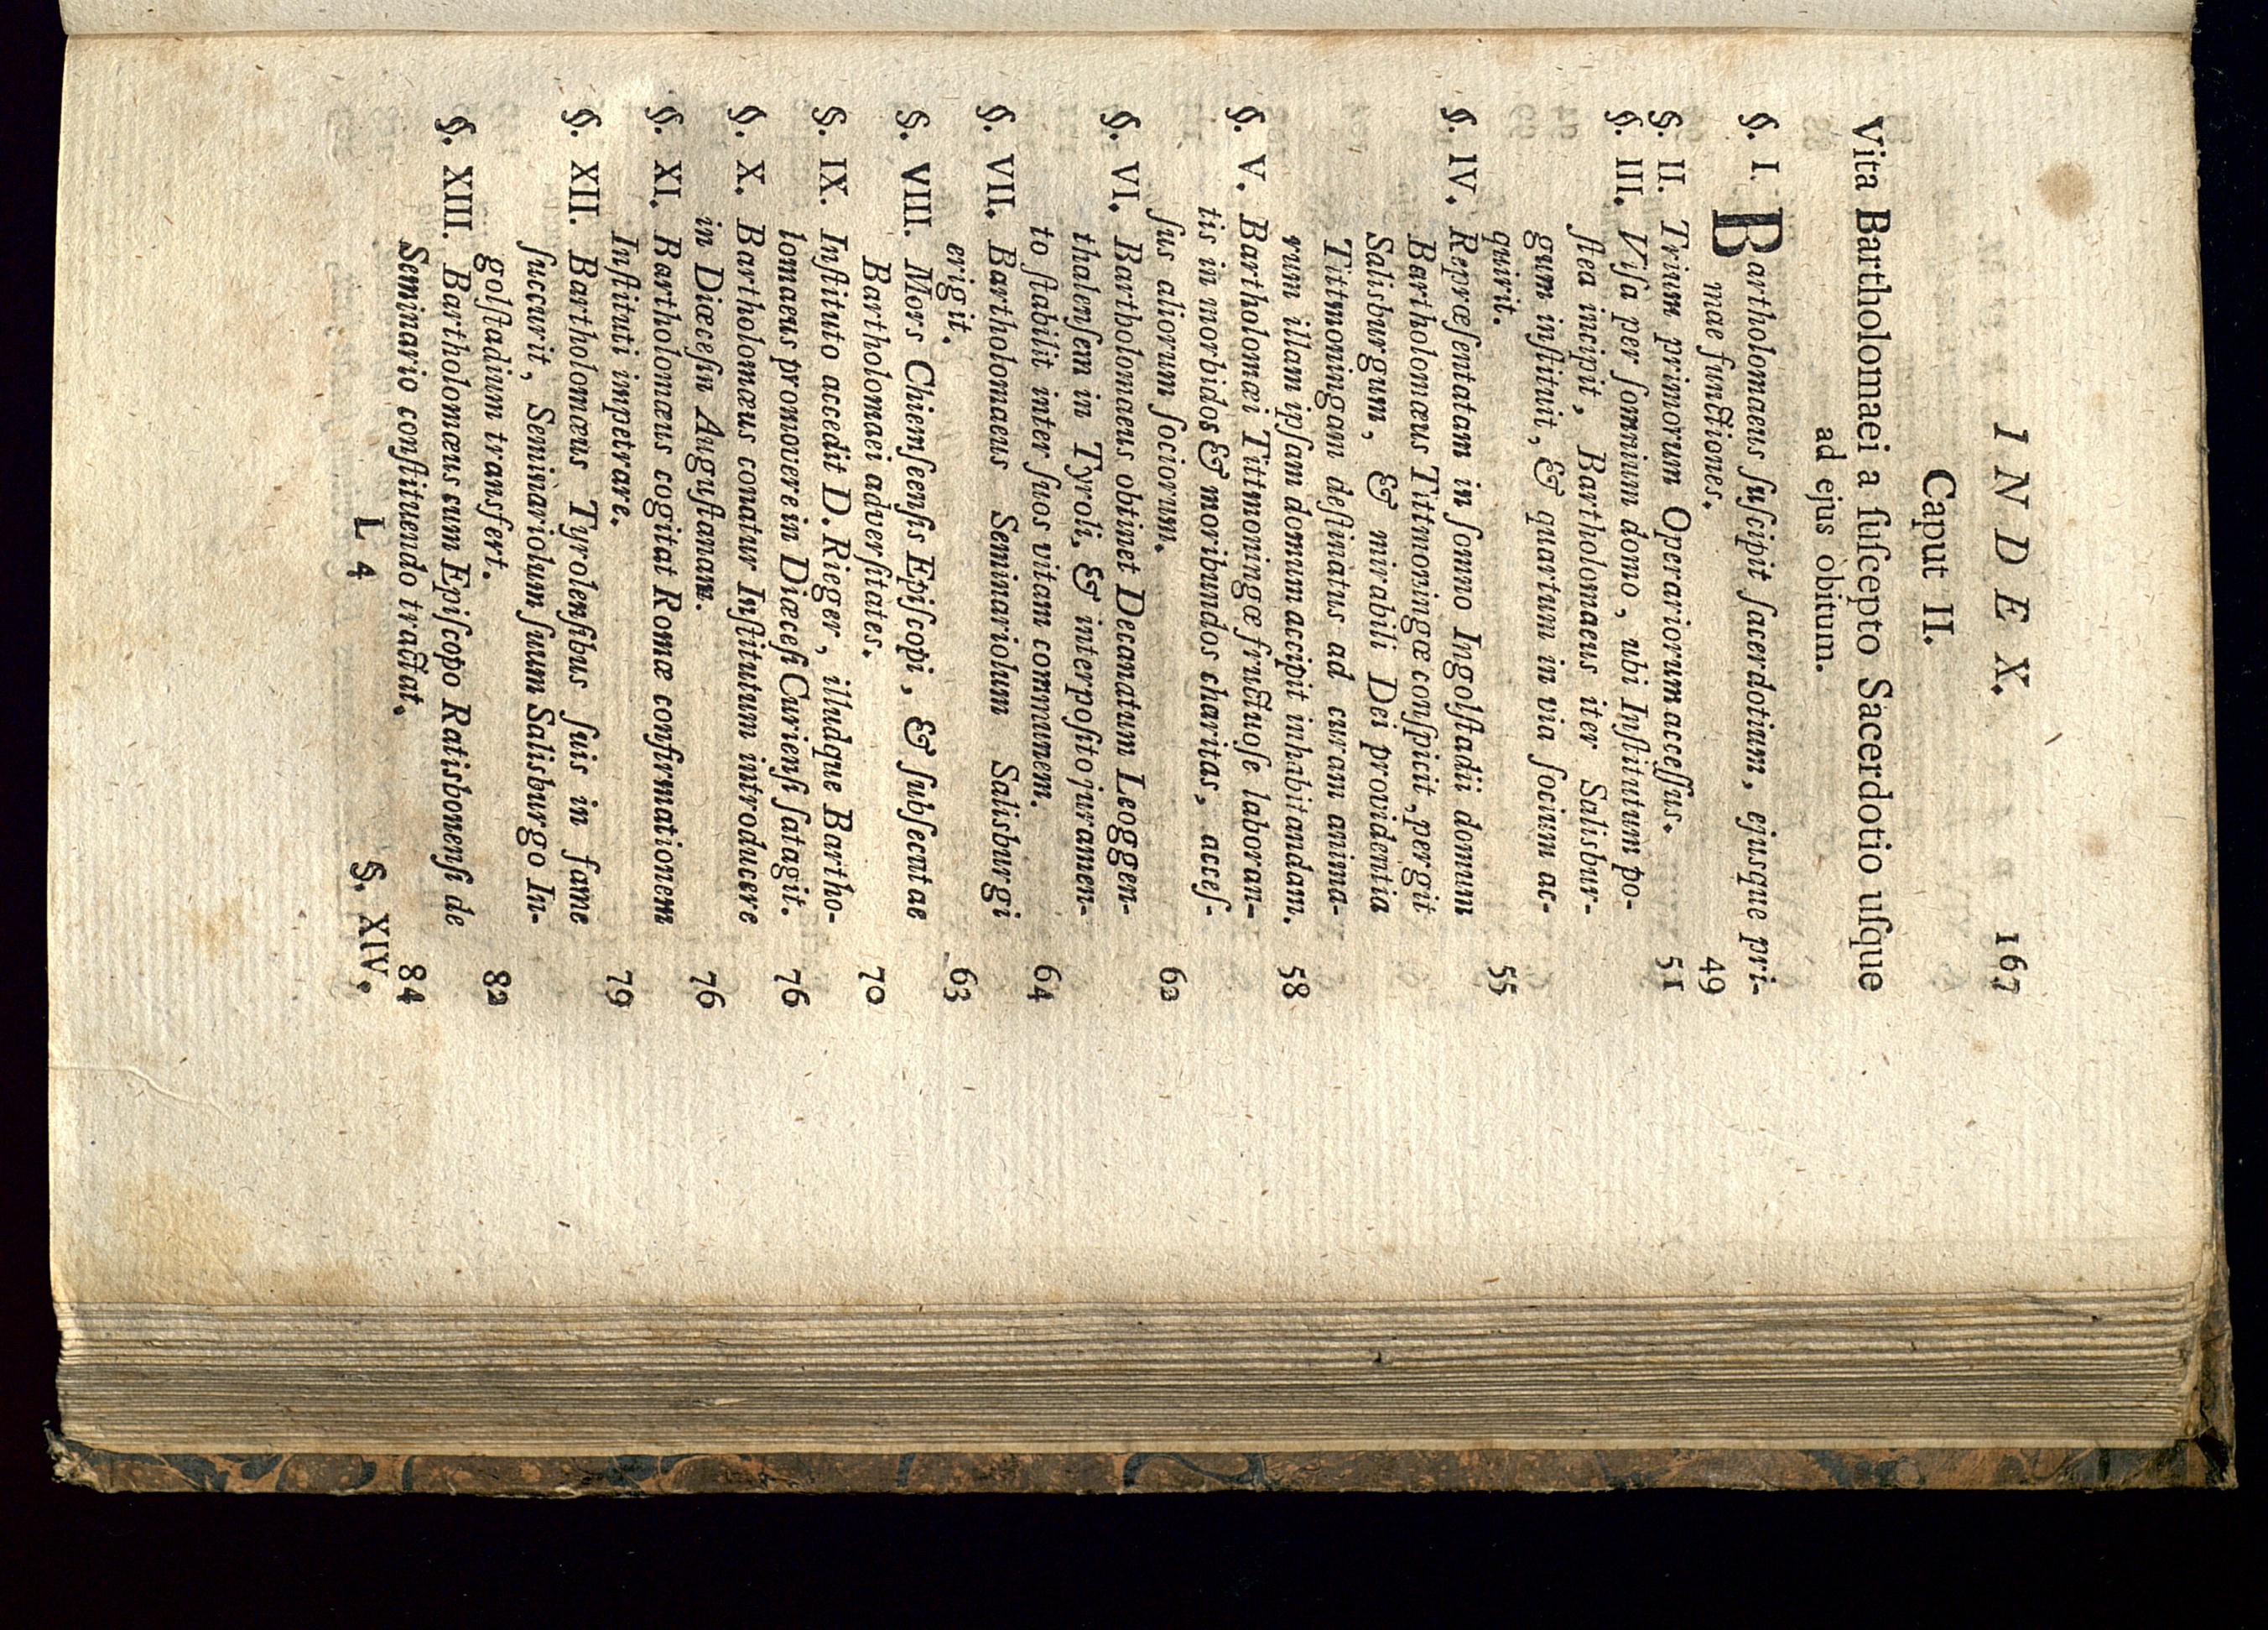 INDEX. 167
Caput II.
Vita Bartholomaei a ſuſcepto Sacerdotio uſque
ad ejus obitum.
§. I. Bartholomaeus ſuſcipit ſacerdotium, ejusque pri-
mae functiones. 49
§. II. Trium primorum Operariorum acceſſus. 51
§. III. Viſa per ſomnium domo, ubi Inſtitutum po-
ſtea incipit, Bartholomaeus iter Salisbur-
gum inſtituit, & quartum in via ſocium ac-
quirit. 55
§. IV. Repræſentatam in ſomno Ingolſtadii domum
Bartholomæus Tittmoningæ conſpicit, pergit
Salisburgum, & mirabili Dei providentia
Tittmoningam deſtinatus ad curam anima-
rum illam ipſam domum accipit inhabitandam. 58
§. V. Bartholomæi Tittmoningæ fructuoſe laboran-
tis in morbidos & moribundos charitas, acceſ-
ſus aliorum ſociorum. 62
§. VI. Bartholomaeus obtinet Decanatum Leoggen-
thalenſem in Tyroli, & interpoſito juramen-
to ſtabilit inter ſuos vitam communem. 64
§. VII. Bartholomaeus Seminariolum Salisburgi
erigit. 63
§. VIII. Mors Chiemſeenſis Epiſcopi, & ſubſecutae
Bartholomaei adverſitates. 70
§. IX. Inſtituto accedit D. Rieger, illudque Bartho-
lomaeus promovere in Diœceſi Curienſi ſatagit. 76
§. X. Bartholomæus conatur Inſtitutum introducere
in Diœceſin Auguſtanam. 76
§. XI. Bartholomæus cogitat Romæ confirmationem
Inſtituti impetrare. 79
§. XII. Bartholomæus Tyrolenſibus ſuis in fame
ſuccurit, Seminariolum ſuum Salisburgo In-
golſtadium transfert. 82
§. XIII. Bartholomæus cum Epiſcopo Ratisbonenſi de
Seminario conſtituendo tractat. 84
L 4 §. XIV.